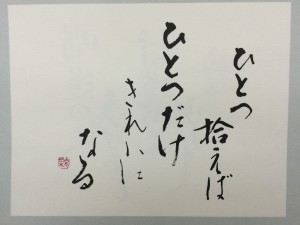 ひとつ
拾えば
ひとつだけ
きれいに
なる